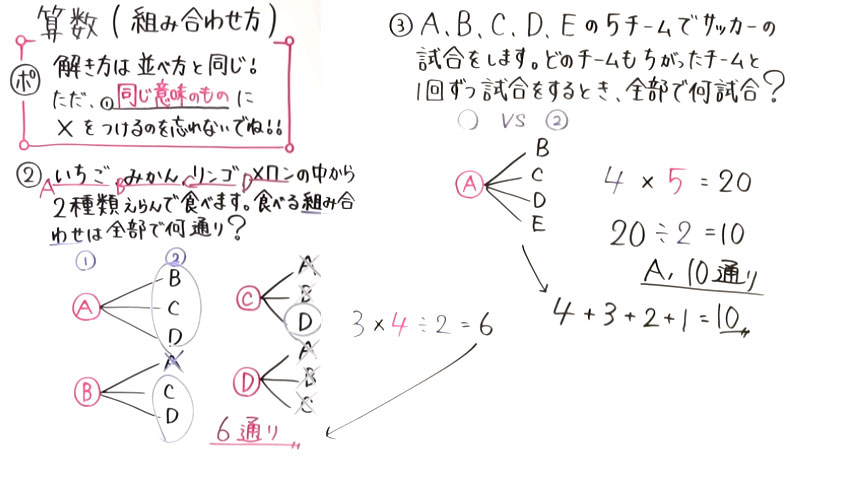 算数(組み合わせ方)
ポ
解き方は並べ方と同じ!
ただ、①同じ意味のものに
×をつけるのを忘れないでね!!
②いちご、みかん、リンゴ、メロンの中から
A B C D
2種類えらんで食べます。食べる組み合
わせは全部で何通り?
① ②
A B C D
B A C D
C A B D
D A B C
6通り
3×4÷2=6
③A、B、C、D、Eの5チームでサッカーの
試合をします。どのチームもちがったチームと
1回ずつ試合をするとき、全部で何試合?
○ VS ②
A B C D E
4×5=20
20÷2=10
A, 10通り
4+3+2+1=10